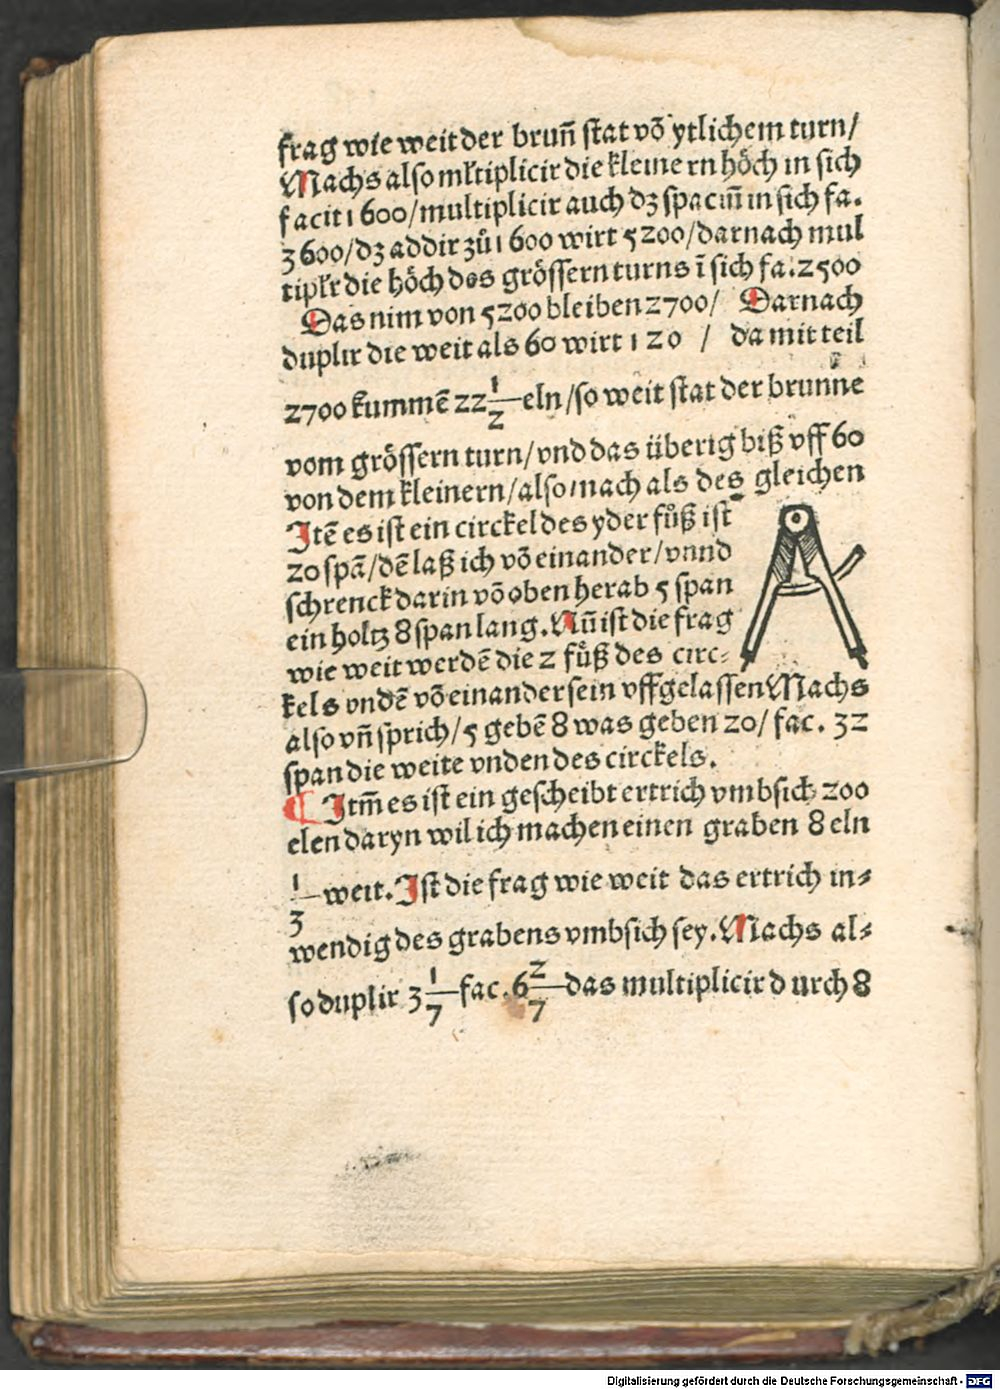 frag wie weit der brun̄ stat vō ytlichem turn/
Machs also młtiplicir die kleinern höch in sich
facit 1600/multiplicir auch dʒ spaciū in sich fa.
3600/dʒ addir zů 1600 wirt 5200/darnach mul
tipłr die höch des grössern turns ī sich fa. 2500
Das nim von 5200 bleiben 2700/ Darnach
duplir die weit als 60 wirt 120 / da mit teil
2700 kummē 22 1/2 eln/so weit stat der brunne
vom grössern turn/vnd das überig biß vff 60
von dem kleinern/also mach als des gleichen
Itē es ist ein circkel des yder fůß ist
20 spā/dē laß ich vō einander/vnnd
schrenck darin vō oben herab 5 span
ein holtz 8 span lang. Nū ist die frag
wie weit werdē die 2 fůß des circ-
kels vndē vō einander sein vffgelassen Machs
also vn̄ sprich/5 gebē 8 was geben 20/fac. 32
span die weite vnden des circkels.
¶ Itm̄ es ist ein gescheibt ertrich vmbsich 200
elen daryn wil ich machen einen graben 8 eln
1/3 weit. Ist die frag wie weit das ertrich in-
wendig des grabens vmbsich sey. Machs al-
so duplir 3 1/7 fac. 6 2/7 das multiplicir durch 8
Digitalisierung gefördert durch die Deutsche Forschungsgemeinschaft - DFG